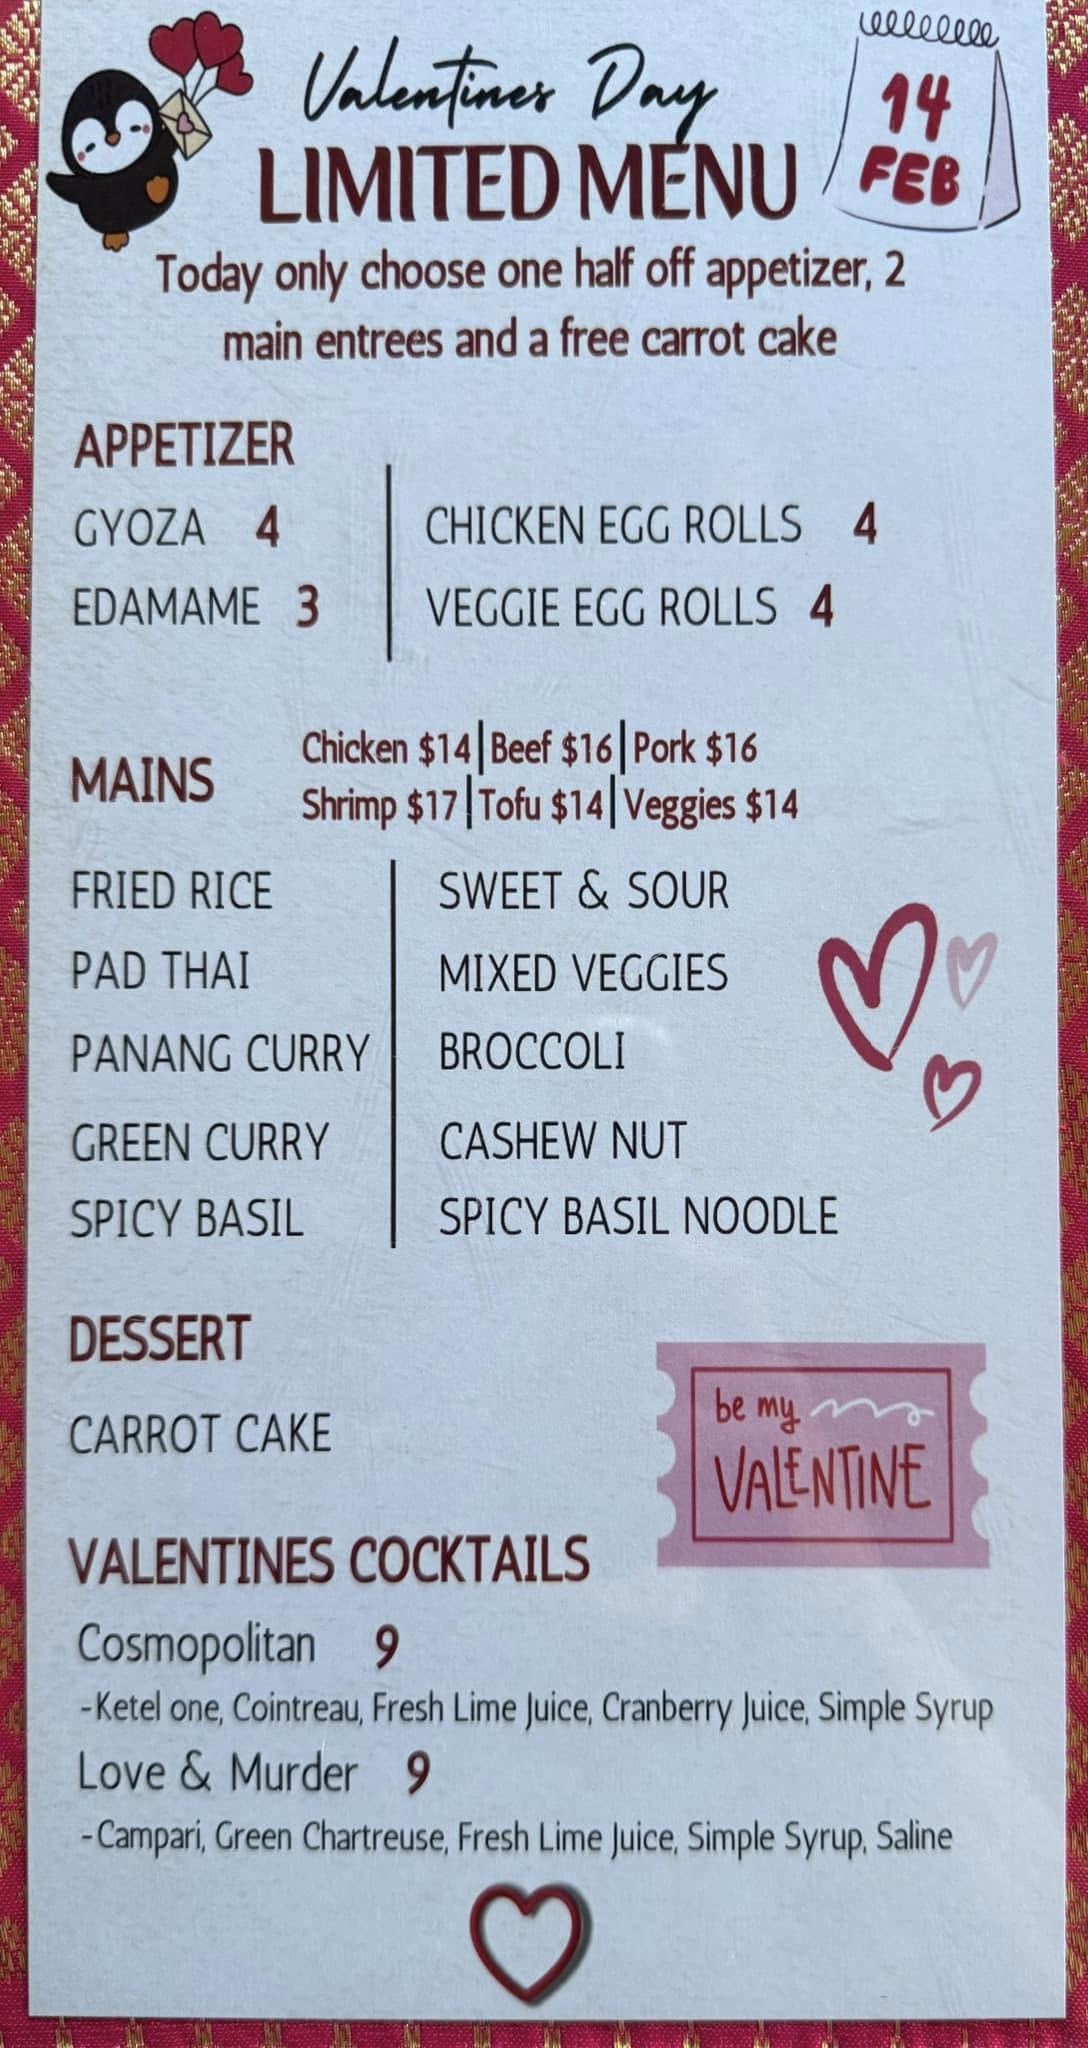 Valentines Day
LIMITED MENU
14
FEB
Today only choose one half off appetizer, 2
main entrees and a free carrot cake
APPETIZER
GYOZA 4
EDAMAME 3
CHICKEN EGG ROLLS 4
VEGGIE EGG ROLLS 4
MAINS
Chicken $14|Beef $16|Pork $16
Shrimp $17|Tofu $14|Veggies $14
FRIED RICE
PAD THAI
PANANG CURRY
GREEN CURRY
SPICY BASIL
SWEET & SOUR
MIXED VEGGIES
BROCCOLI
CASHEW NUT
SPICY BASIL NOODLE
DESSERT
CARROT CAKE
be my
VALENTINE
VALENTINES COCKTAILS
Cosmopolitan 9
-Ketel one, Cointreau, Fresh Lime Juice, Cranberry Juice, Simple Syrup
Love & Murder 9
-Campari, Green Chartreuse, Fresh Lime Juice, Simple Syrup, Saline